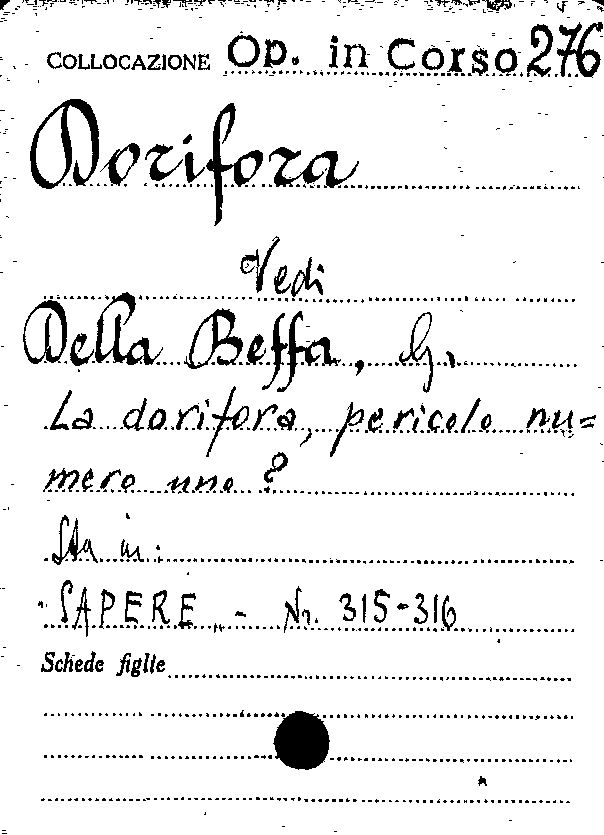 COLLOCAZIONE Op. in Corso 276
Dorifora
Vedi
Della Beffa, G.
La dorifora, pericolo nu=
mero uno?
Sta in:
"SAPERE„ - Nr. 315-316
Schede figlie